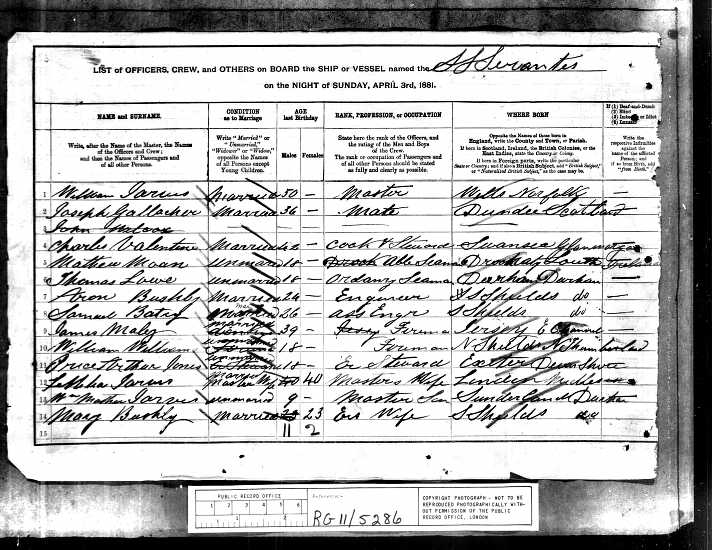 LIST of OFFICERS, CREW, and OTHERS on BOARD the SHIP or VESSEL named the SS Servantes
on the NIGHT of SUNDAY, APRIL 3rd, 1881.
NAME and SURNAME. CONDITION as to Marriage AGE last Birthday RANK, PROFESSION, or OCCUPATION WHERE BORN If (1) Deaf-and-Dumb (2) Blind (3) Imbecile or Idiot (4) Lunatic
Write, after the Name of the Master, the Names of the Officers and Crew; and then the Names of Passengers and of all other Persons. Write "Married" or "Unmarried," "Widower" or "Widow," opposite the Names of all Persons except Young Children. Males Females State here the rank of the Officers, and the rating of the Men and Boys of the Crew. The rank or occupation of Passengers and of all other Persons should be stated as fully and clearly as possible. Opposite the Names of those born in England, write the County and Town, or Parish. If born in Scotland, Ireland, the British Colonies, or the East Indies, state the Country or Colony. If born in Foreign parts, write the particular State or Country; and if also a British Subject, add "British Subject," or "Naturalised British Subject," as the case may be. Write the respective Infirmities against the name of the afflicted Person; and if so from Birth, add "from Birth."
1 William Jarvis Married 50 — Master Wells Norfolk —
2 Joseph Gallacher Married 36 — Mate Dundee Scotland
3 John Wilcox
4 Charles Valentine Married 42 — Cook & Steward Swansea
5 Mathew Moan unmarried 18 — Able Seaman
6 Thomas Lowe unmarried 18 — Ordanry Seaman Durham —
7 Aron Bushby Married 24 — Engineer S Shields do —
8 Samuel 26 — ass Engr S Shields do —
9 James married 39 — Fireman Jersey Channel —
10 William William unmarried 18 — Fireman N Shields
11 Arthur Jones unmarried 18 — Er Steward Exeter
12 Jarvis 40 Masters Wife
13 Wm Jarvis unmarried 9 — Master Son Sunderland
14 Mary Bushby Married 23 Ers Wife S Shields do
15 11 2
PUBLIC RECORD OFFICE
1 2 3 4 5 6
Reference:-
RG 11/5286
COPYRIGHT PHOTOGRAPH - NOT TO BE
REPRODUCED PHOTOGRAPHICALLY WITH-
OUT PERMISSION OF THE PUBLIC
RECORD OFFICE, LONDON